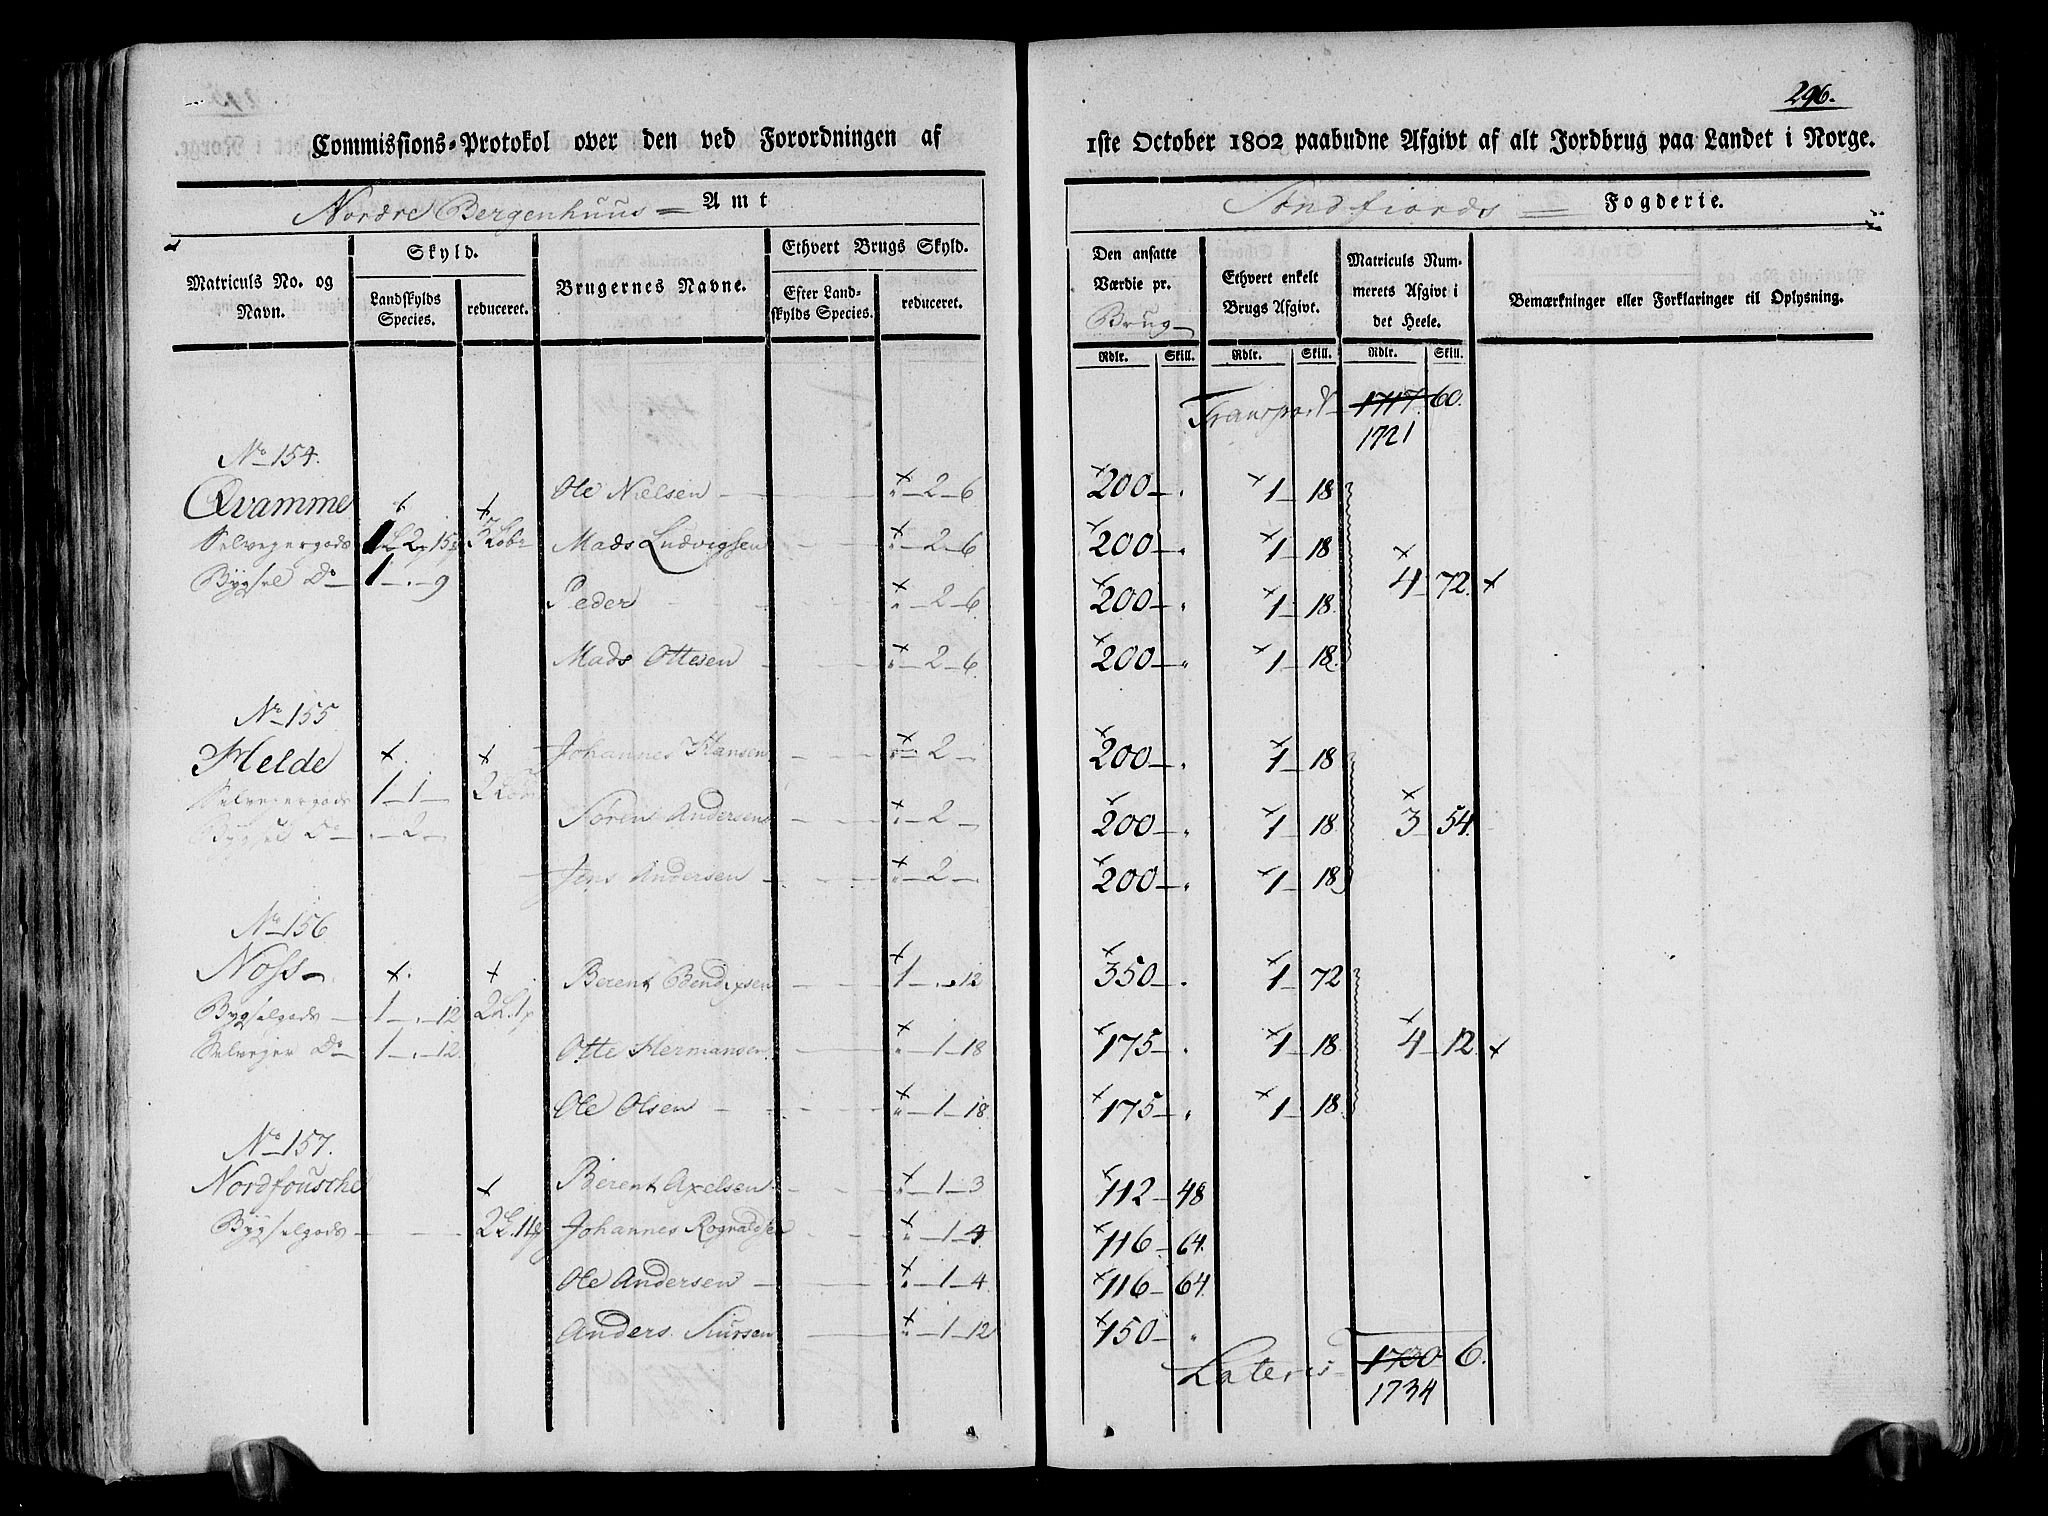 296.
Commissions-Protokol over den ved Forordningen af 1ste October 1802 paabudne Afgivt af alt Jordbrug paa Landet i Norge.
Nordre Bergenhuus Amt
Søndfiords Fogderie.
Matriculs No. og Navn.
Skyld.
Landskylds Species.
reduceret.
Brugernes Navne.
Ethvert Brugs Skyld.
Efter Landskylds Species.
reduceret.
Den ansatte Værdie pr. Brug
Ethvert enkelt Brugs Afgivt.
Matriculs Nummerets Afgivt i det Heele.
Bemærkninger eller Forklaringer til Oplysning.
Rdlr. Skill. Rdlr. Skill. Rdlr. Skill.
Transport 1717. 60.
1721
No 154.
Qvamme Ole Nielsen " 2 6 200 " 1 18
Selvejergods Mads Ludvigsen " 2 6 200 " 1 18
Bygsel Do 1 . 9 Peder " 2 6 200 " 1 18 4 72.
Mads Ottesen " 2 6 200 " 1 18
No 155
Helde Johannes Hansen " 2 200 " 1 18
Selvejergods 1 1
Bygsel Do . 2 Søren Andersen " 2 200 " 1 18 3 54
Jens Andersen " 2 200 " 1 18
No 156
Noss Berent Bendixsen 1 . 12 350 . 1 72
Bygselgods 1 . 12
Selvejer Do 1 . 12 Otte Hermansen " 1 18 175 . 1 18 4 12.
Ole Olsen " 1 18 175 " 1 18
No 157.
Nordfousche Berent Axelsen " 1 3 112 48
Bygselgods Johannes Rognaldsen " 1 4 116 64.
Ole Andersen " 1 4 116 64
Anders " 1 12 150 "
Lateris 1730 6.
1734